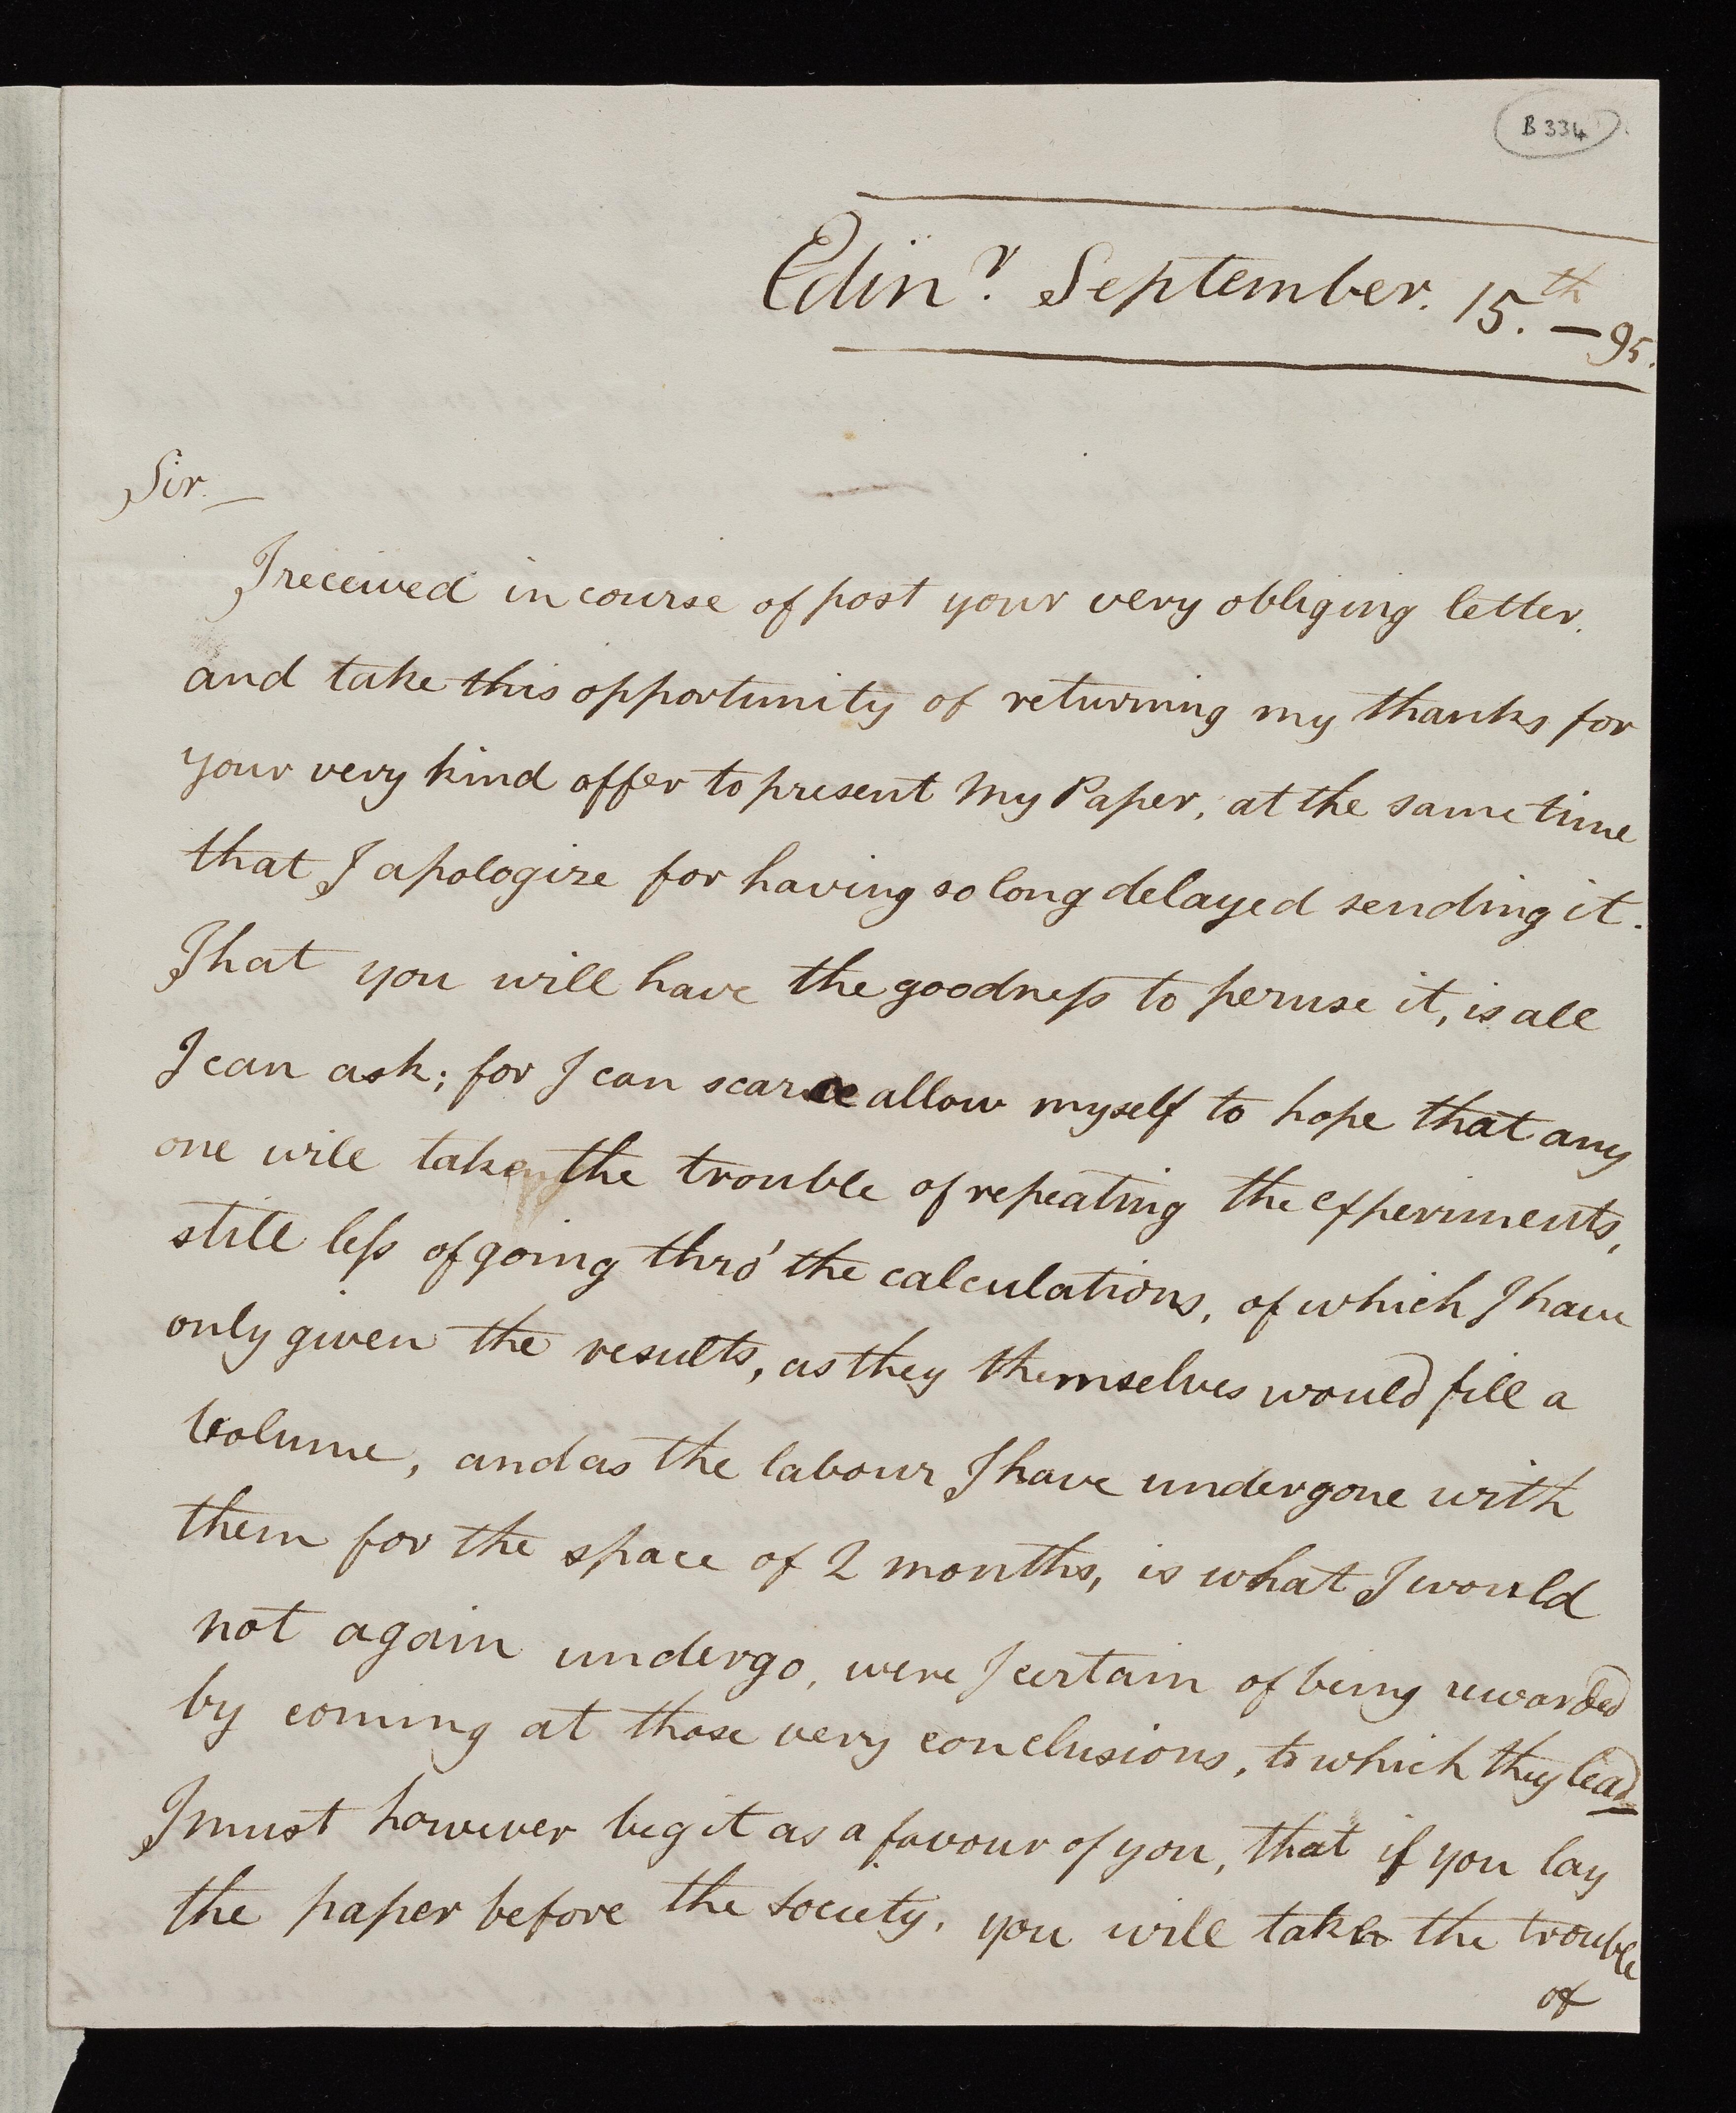 B 334
Edinr. September. 15.th — 95.
Sir. —
I received in course of post your very obliging letter.
and take this opportunity of returning my thanks for
your very kind offer to present My Paper, at the same time
that I apologize for having so long delayed sending it.
That you will have the goodness to peruse it, is all
I can ask; for I can scarce allow myself to hope that any
one will take the trouble of repeating the experiments,
still less of going thro' the calculations, of which I have
only given the results, as they themselves would fill a
volume, and as the labour I have undergone with
them for the space of 2 months, is what I would
not again undergo, were I certain of being rewarded
by coming at those very conclusions, to which they lead
I must however beg it as a favour of you, that if you lay
the paper before the Society, you will take the trouble
of